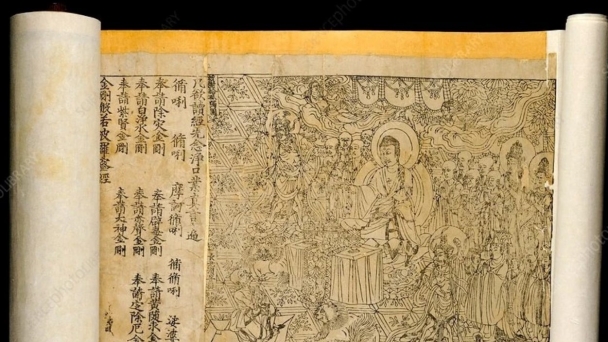 凡欲讀經先念淨口業真言一遍
脩唎 脩唎 摩訶脩唎 脩脩唎 娑婆
奉請除灾金剛 奉請辟毒金剛 奉請黃隨求金
奉請白淨水金剛 奉請赤聲金剛 奉請定除厄金
奉請紫賢金剛 奉請大神金剛
金剛般若波羅蜜經